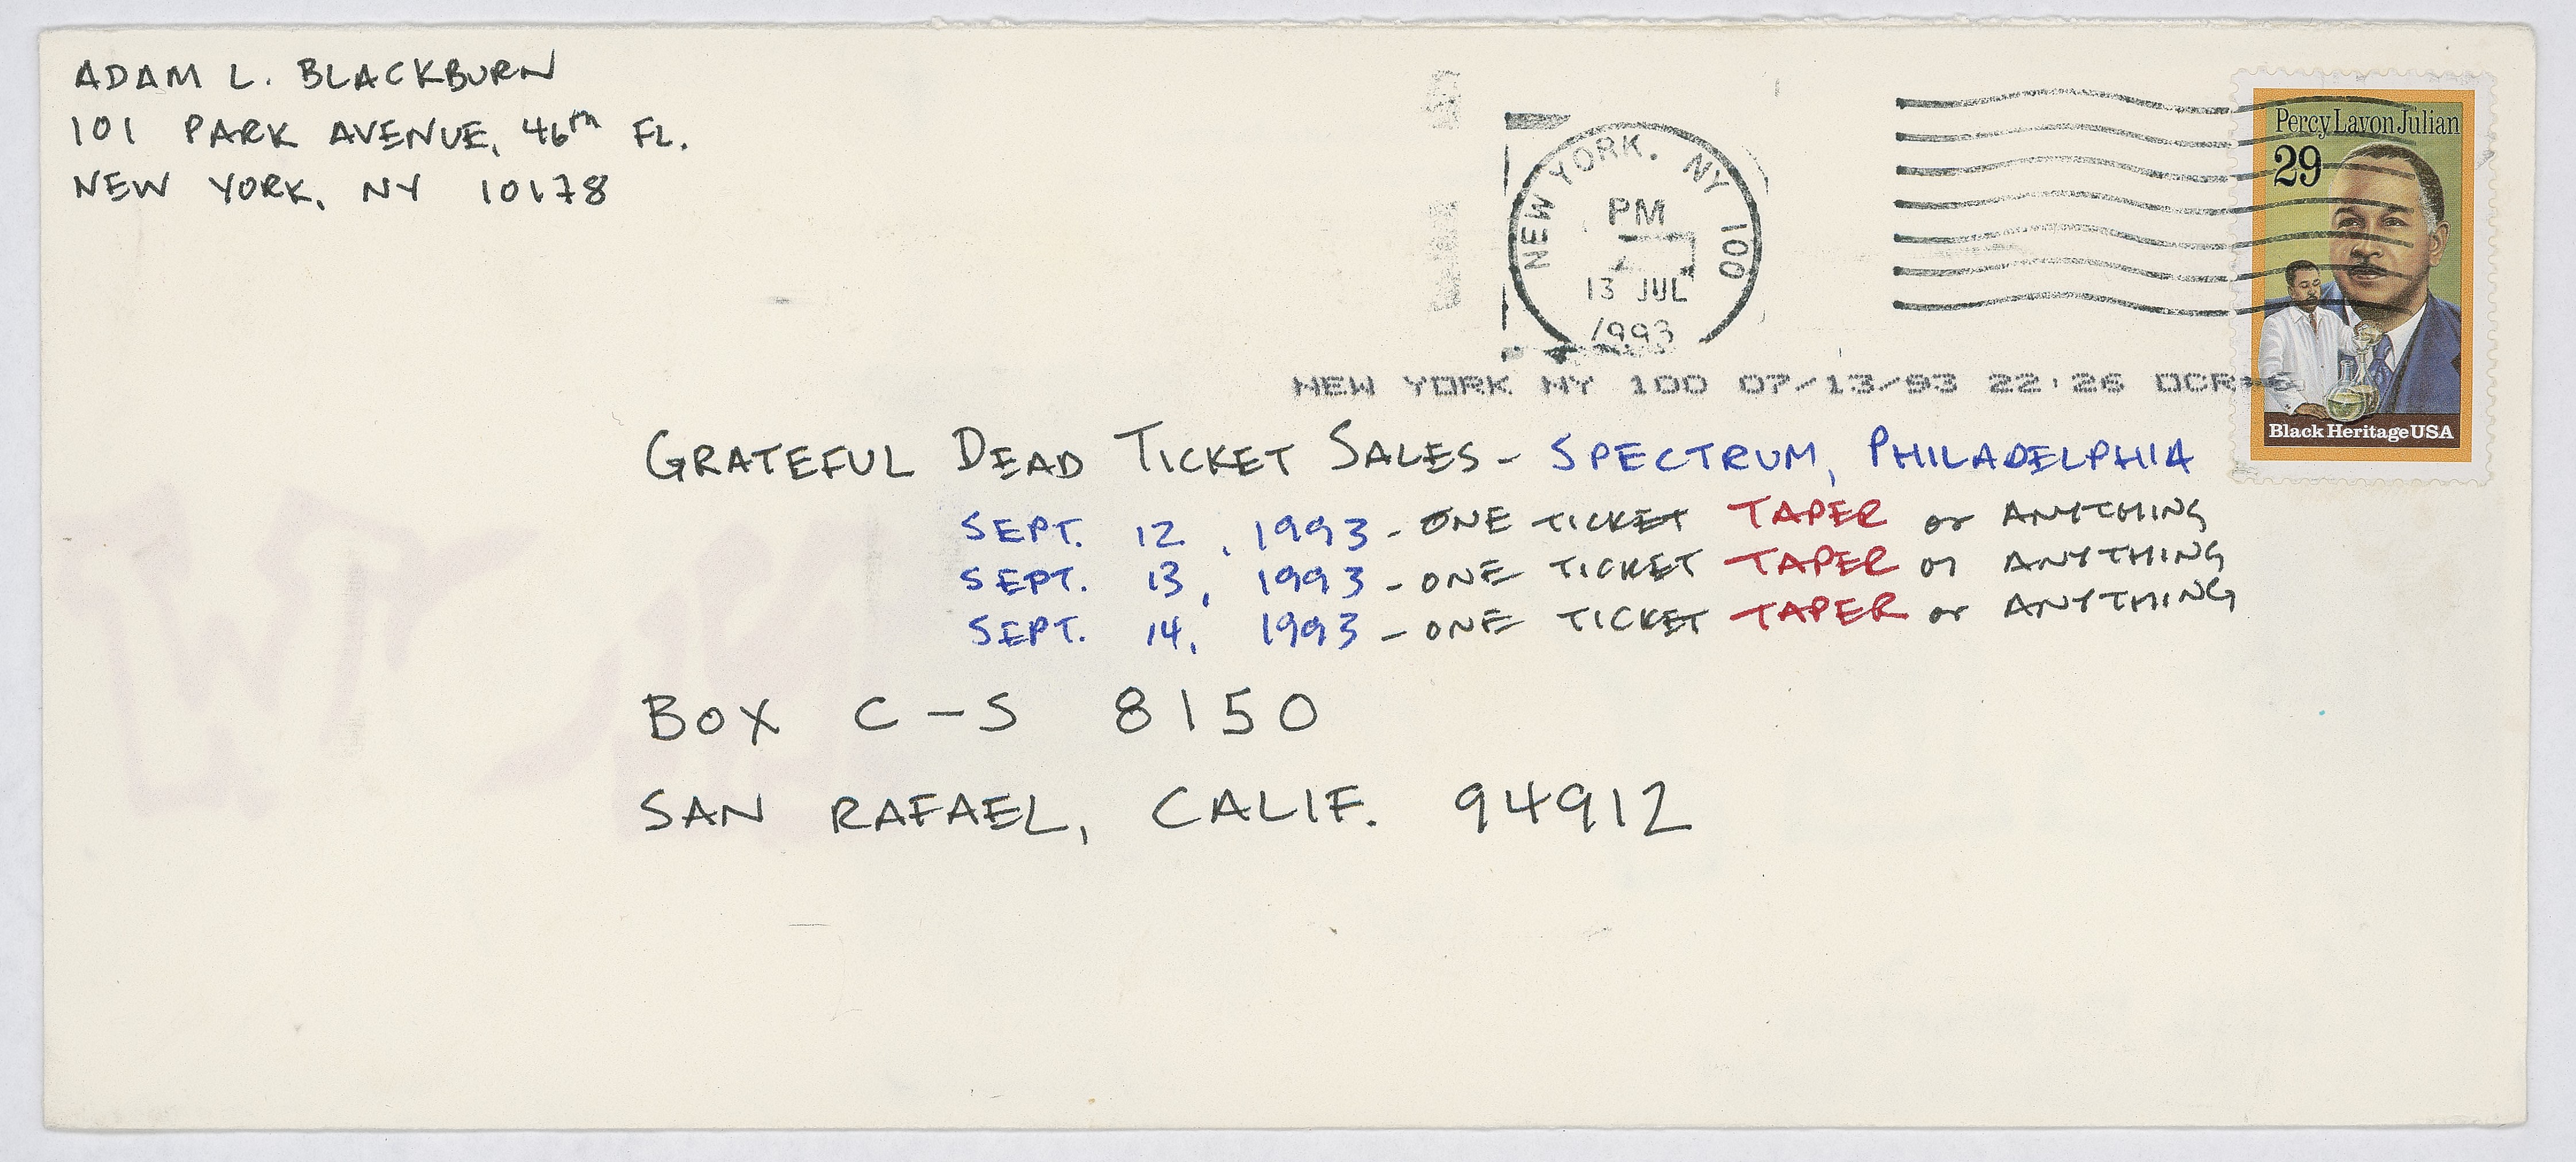 ADAM L. BLACKBURN
101 PARK AVENUE, 46th FL.
NEW YORK, NY 10178
NEW YORK, NY 100
PM
13 JUL
1993
Percy Lavon Julian
29
Black Heritage USA
NEW YORK NY 100 07/13/93 22:26 OCR
GRATEFUL DEAD TICKET SALES - SPECTRUM, PHILADELPHIA
SEPT. 12, 1993 - ONE TICKET TAPER or ANYTHING
SEPT. 13, 1993 - ONE TICKET TAPER or ANYTHING
SEPT. 14, 1993 - ONE TICKET TAPER or ANYTHING
BOX C-S 8150
SAN RAFAEL, CALIF. 94912